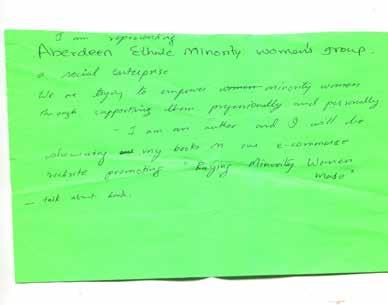 I am representing
Aberdeen Ethnic Minority women's group.
a social enterprise
We are trying to empower women minority women
through supporting them professionally and personally.
- I am an author and I will be
showcasing my books in our e-commerce
website promoting "Buying Minority Women
Made"
- talk about book.